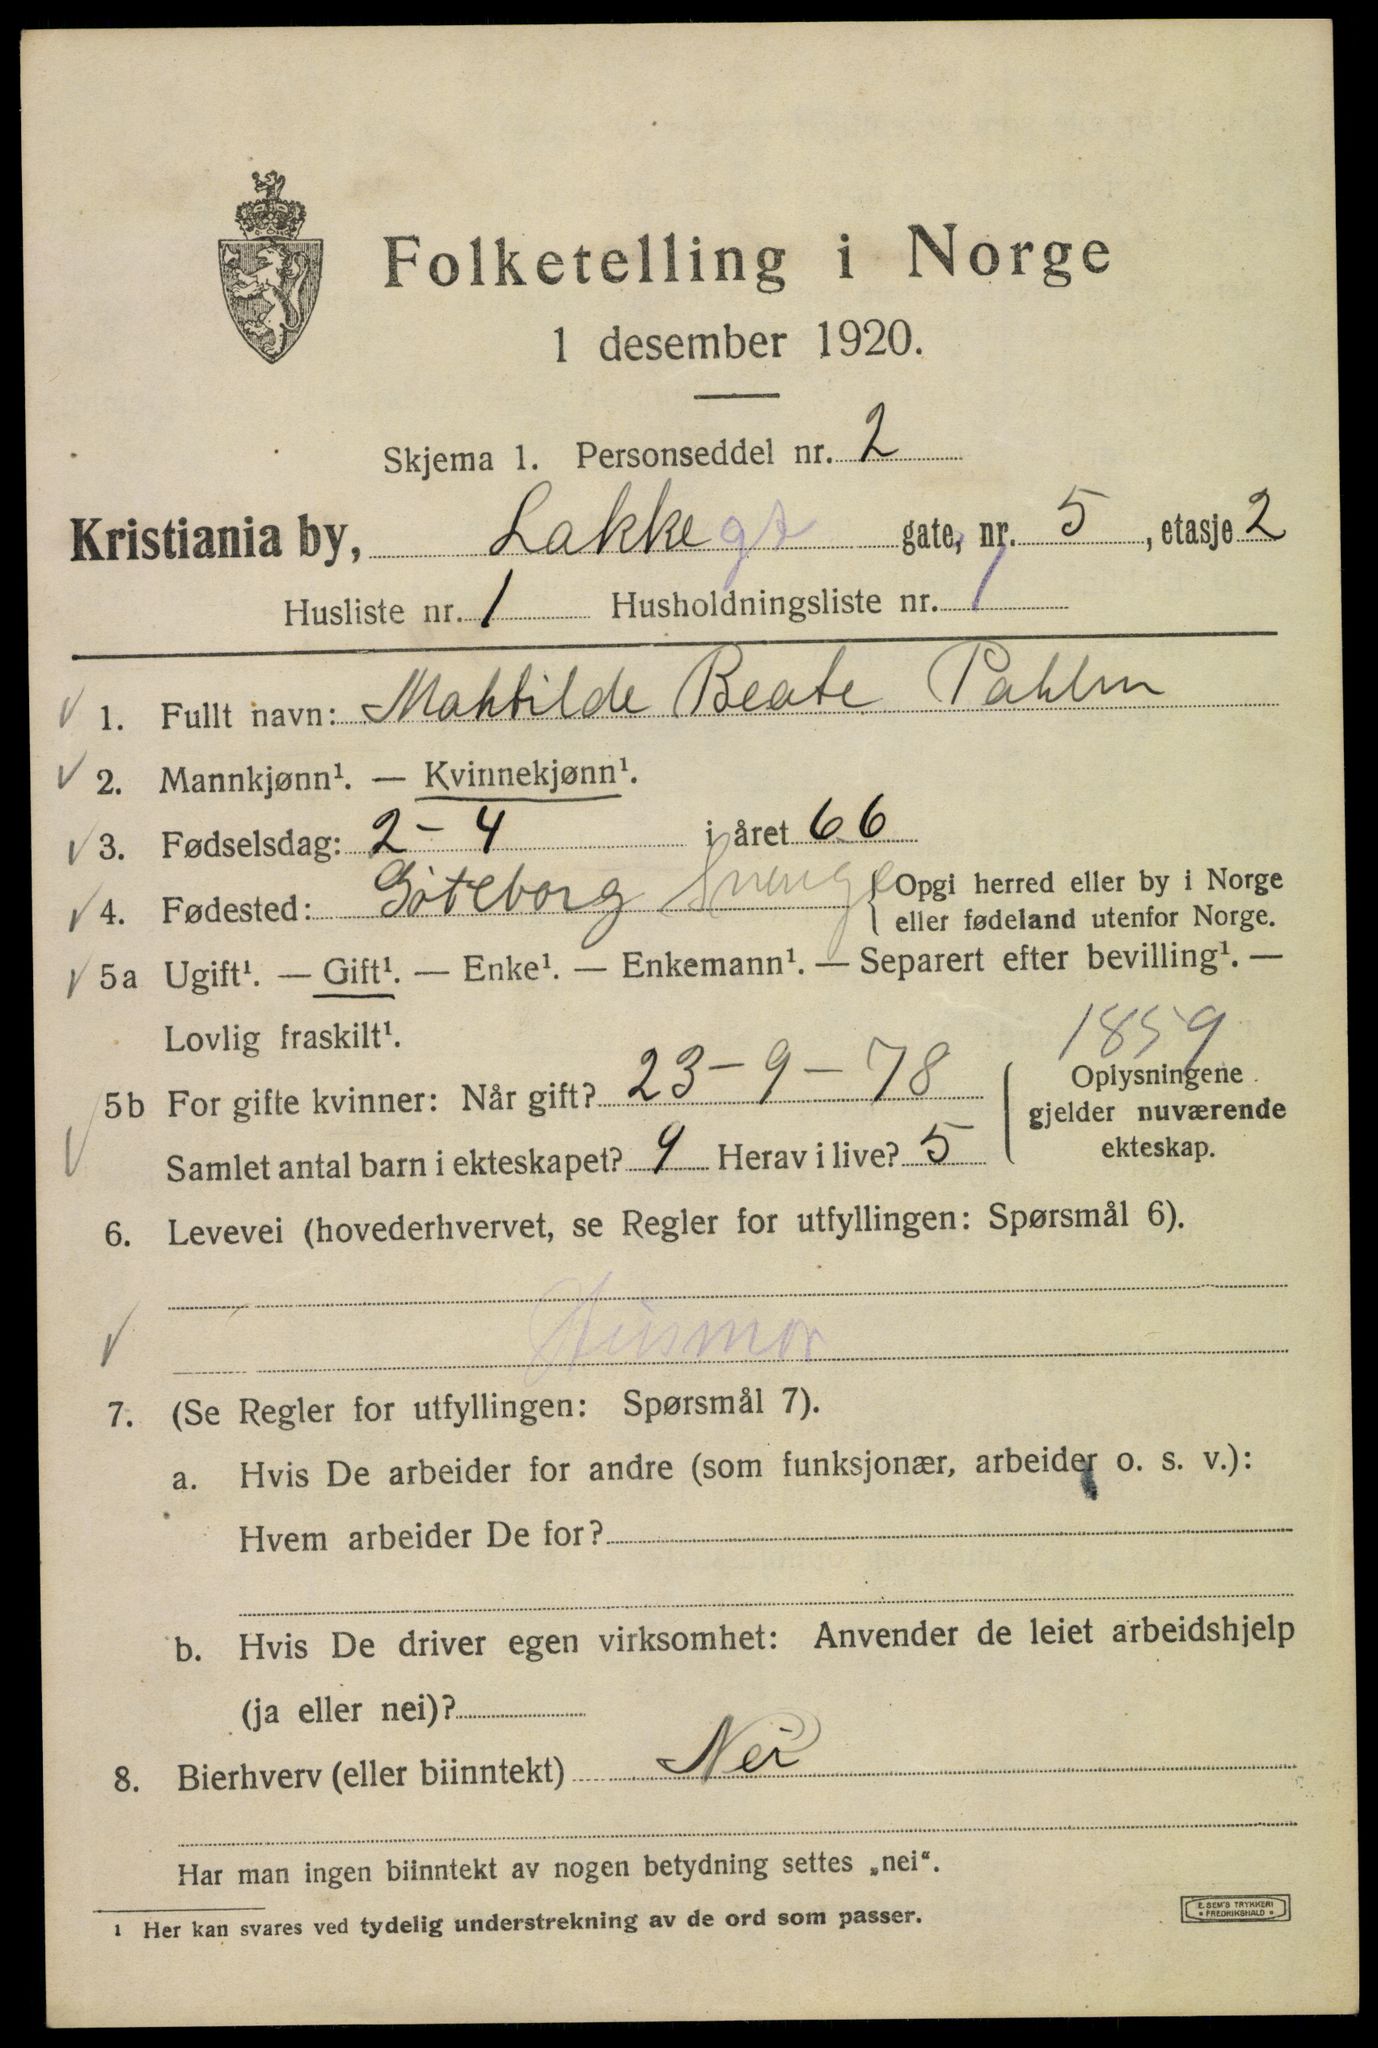 Folketelling i Norge
1 desember 1920.
Skjema 1. Personseddel nr. 2
Kristiania by, Lakkegt gate, nr. 5, etasje 2
Husliste nr. 1 Husholdningsliste nr. 1
1. Fullt navn: Mahtilde Beate Pahlm
2. Mannkjønn¹. — Kvinnekjønn¹.
3. Fødselsdag: 2-4 i året 66
4. Fødested: Göteborg Sverige { Opgi herred eller by i Norge
eller fødeland utenfor Norge.
5a Ugift¹. — Gift¹. — Enke¹. — Enkemann¹. — Separert efter bevilling¹. —
Lovlig fraskilt¹.
1859
5b For gifte kvinner: Når gift? 23-9-78
Samlet antal barn i ekteskapet? 9 Herav i live? 5
Oplysningene
gjelder nuværende
ekteskap.
6. Levevei (hovederhvervet, se Regler for utfyllingen: Spørsmål 6).
Husmor
7. (Se Regler for utfyllingen: Spørsmål 7).
a. Hvis De arbeider for andre (som funksjonær, arbeider o. s. v.):
Hvem arbeider De for?
b. Hvis De driver egen virksomhet: Anvender de leiet arbeidshjelp
(ja eller nei)?
8. Bierhverv (eller biinntekt) Nei
Har man ingen biinntekt av nogen betydning settes „nei“.
¹ Her kan svares ved tydelig understrekning av de ord som passer.
E. SEM'S TRYKKERI
* FREDRIKSHALD *